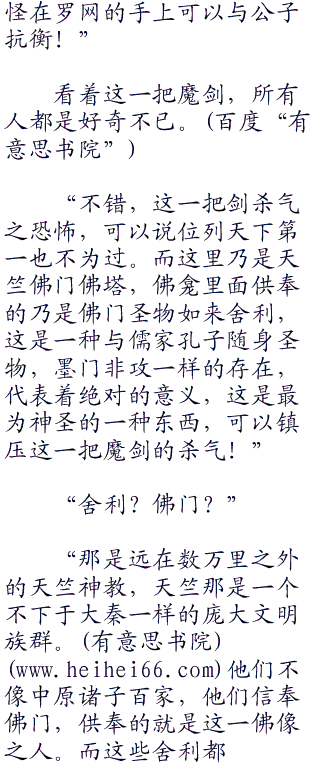 怪在罗网的手上可以与公子
抗衡！”
看着这一把魔剑，所有
人都是好奇不已。(百度“有
意思书院”)
“不错，这一把剑杀气
之恐怖，可以说位列天下第
一也不为过。而这里乃是天
竺佛门佛塔，佛龛里面供奉
的乃是佛门圣物如来舍利，
这是一种与儒家孔子随身圣
物，墨门非攻一样的存在，
代表着绝对的意义，这是最
为神圣的一种东西，可以镇
压这一把魔剑的杀气！”
“舍利？佛门？”
“那是远在数万里之外
的天竺神教，天竺那是一个
不下于大秦一样的庞大文明
族群。(有意思书院)
(www.heihei66.com)他们不
像中原诸子百家，他们信奉
佛门，供奉的就是这一佛像
之人。而这些舍利都